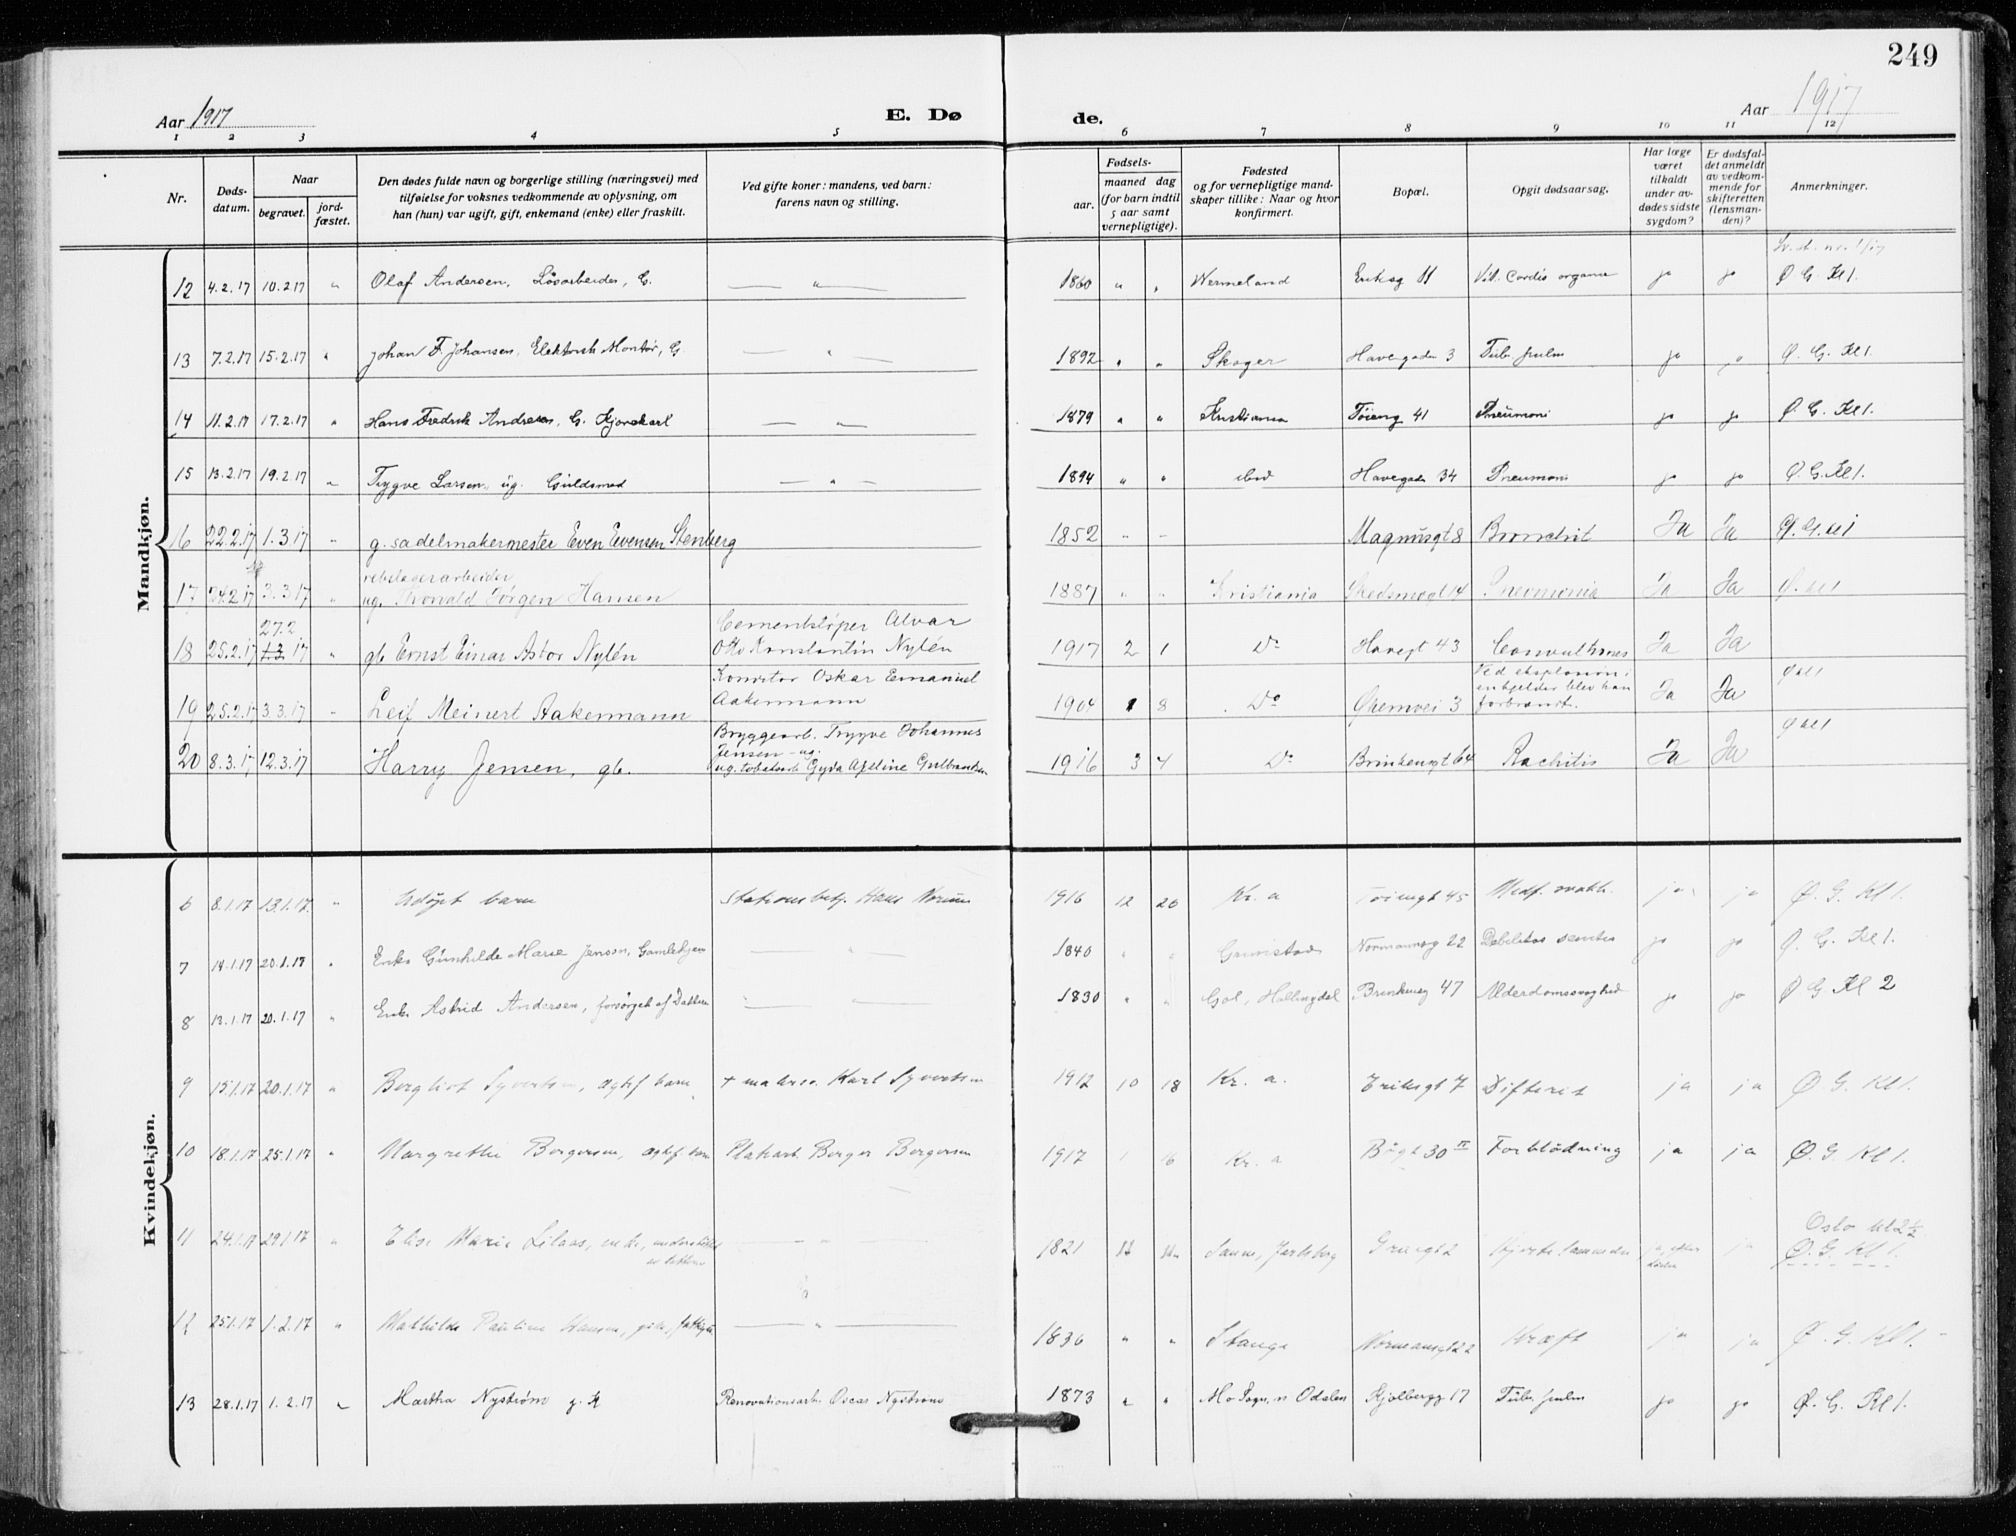 249
Aar 1917 E. Dø de. Aar 1917
1 2 3 4 5 6 7 8 9 10 11 12
Nr.
Døds-
datum.
Naar
begravet.
jord-
fæstet.
Den dødes fulde navn og borgerlige stilling (næringsvei) med
tilføielse for voksnes vedkommende av oplysning, om
han (hun) var ugift, gift, enkemand (enke) eller fraskilt.
Ved gifte koner: mandens, ved barn:
farens navn og stilling.
Fødsels-
aar.
maaned dag
(for barn indtil
5 aar samt
vernepligtige).
Fødested
og for vernepligtige mand-
skaper tillike: Naar og hvor
konfirmert.
Bopæl.
Opgit dødsaarsag.
Har læge
været
tilkaldt
under av-
dødes sidste
sygdom?
Er dødsfal-
det anmeldt
av vedkom-
mende for
skifteretten
(lensman-
den)?
Anmerkninger.
Mandkjøn.
12 4.2.17 10.2.17 " Olaf Andersen, Løsarbeider, G. — " — 1860 " " Wermeland Eriksg 11 Vit. Cordis organa ja ja Ø G. Kl 1.
13 7.2.17 15.2.17 " Johan F. Johansen, Elektrisk Montør, G. — " — 1892 " " Skoger Havegaden 3 Tub. pulm ja ja Ø. G. Kl 1.
14 11.2.17 17.2.17 " Hans Fredrik Andresen, G. Kjørekarl — " — 1879 " " Kristiania Tøieng 41 Pneumoni ja ja Ø. G. Kl 1.
15 13.2.17 19.2.17 " Trygve Larsen, ug. Guldsmed — " — 1894 " " ibid Havegaden 34 Pneumoni ja ja Ø. G. Kl 1.
16 22.2.17 1.3.17 " g. sadelmakermester Even Evensen Stenberg 1852 " " Magnusgt 8 Bronchit Ja Ja Ø. G. kl 1
rebslagerarbeider
17 24.2.17 3.3.17 " ug. Thorvald Jørgen Hansen 1887 " " Kristiania Schedsmogt 14 Pneumonia Ja Ja Ø. kl 1
27.2 Cementstøper Alvar
18 25.2.17 1.3 17 " gb. Ernst Einar Astor Nylén Otto Konstantin Nylén 1917 2 1 Do Havegt 43 Convulsiones Ja Ja
Konditor Oskar Emanuel Ved eksplosion i Ø kl 1
19 25.2.17 3.3.17 " Leif Meinert Aakermann Aakermann 1904 1 8 Do Økernvei 3 en kjelder blev han forbrændt. Ja Ja
Bryggearb. Trygve Johannes Ø kl 1
Jensen - ug.
20 8.3.17 12.3.17 Harry Jensen, gb. ug. tobaksarb Gyda Apeline Gulbrandsen 1916 3 4 Do Brinkensgt 64 Rachitis Ja Ja
Kvindekjøn.
6 8.1.17 13.1.17 " Udøpt barn Stationsbetj. Hans Norum 1916 12 20 Kr. a Tøiengt 45 Medf. svakh. ja ja Ø. G. Kl 1.
7 14.1.17 20.1.17 " Enke Gunhilde Marie Jenson, Gamlehjem — " — 1840 " " Grimstad Normannsg 22 Debilitas senilis ja ja Ø. G. Kl 1.
8 13.1.17 20.1.17 " Enke Astrid Andersen, forsørget af Datteren — " — 1830 " " Gol, Hallingdal Brinkensg 47 Alderdomssvaghed ja ja Ø G. Kl 2
9 15.1.17 20.1.17 " Bergliot Syvertsen, ægtef barn + matros Karl Syvertsen 1912 10 18 Kr. a. Eriksgt 7 Difterit ja ja Ø G. Kl 1.
10 18.1.17 25.1.17 " Margrethe Bergersen, ægtef barn Platearb Berger Bergersen 1917 1 16 Kr. a Bøgt 30 II Forblødning ja ja Ø. G. Kl 1.
Oslo kl 2 1/2
11 24.1.17 29.1.17 " Elise Marie Lilaas, enke, understøttes — " — 1821 Sanne, Jarlsberg Hjerte lammelse ja, efter ja Ø. G. Kl 1.
av datteren døden
12 25.1.17 1.2.17 " Mathilde Pauline Hansen, — " — 1836 " " Stange Normannsgt 22 Kræft ja ja Ø. G. Kl 1.
13 28.1.17 1.2.17 " Martha Nystrøm g. K Renovationsarb. Oscar Nystrøm 1873 " " Mo Sogn, n Odalen Kjølbergg 17 Tub. pulm ja ja Ø. G. Kl 1.